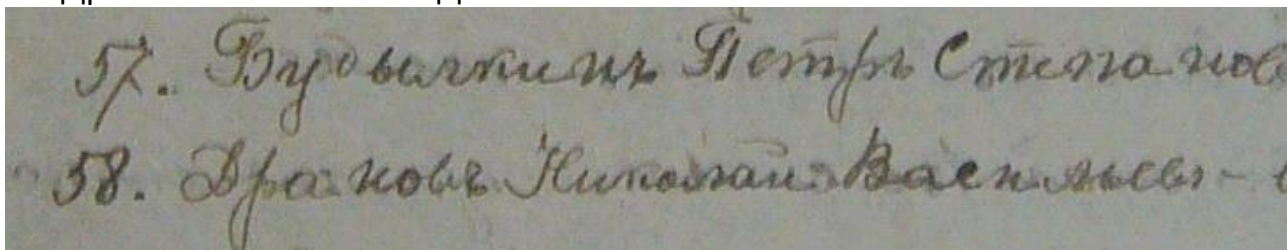 57. Будылкинъ Петръ Степанов
58. Драновъ Николай Василье